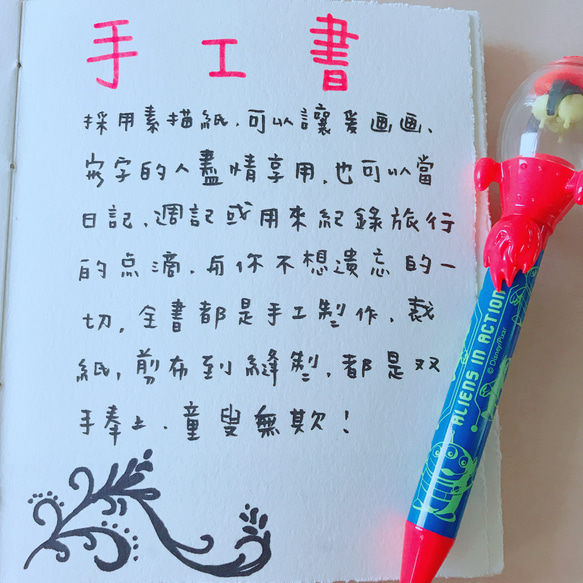 手工書
採用素描紙.可以讓愛画画、
寫字的人盡情享用,也可以當
日記,週記或用來紀錄旅行
的点滴,有你不想遺忘的一
切,全書都是手工製作,裁
紙,剪布到縫製,都是双
手奉上.童叟無欺!
ALIENS IN ACTION
© Disney/Pixar